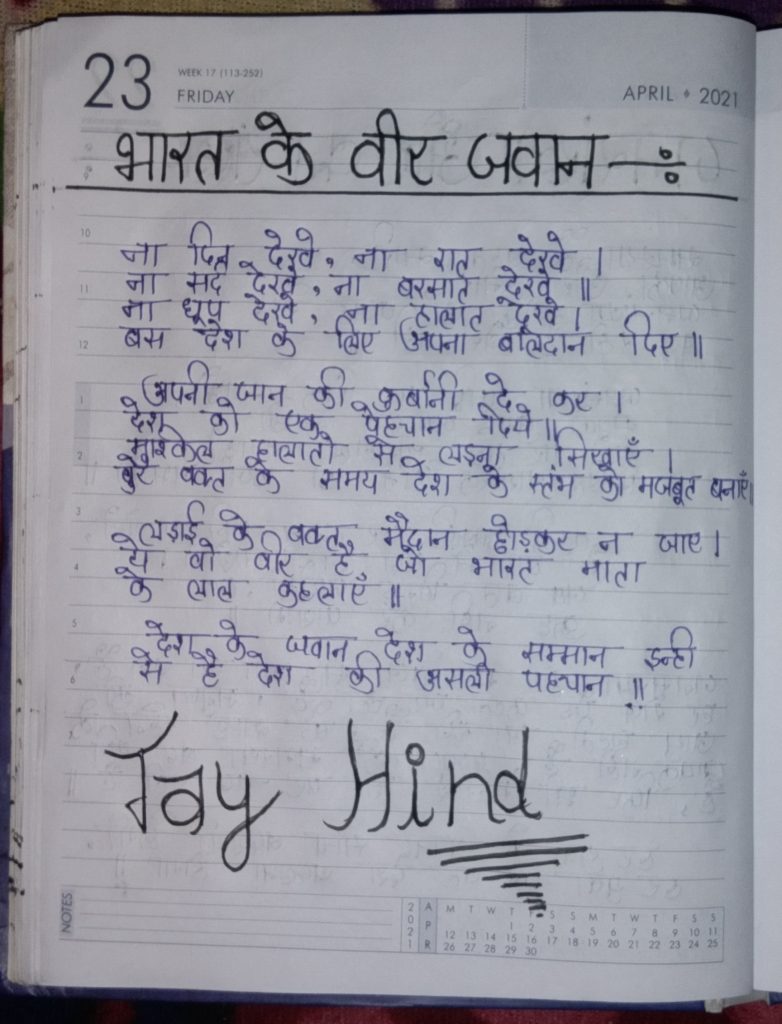 23
WEEK 17 (113-252)
FRIDAY
APRIL • 2021
भारत के वीर जवान —:
10
ना दिन देखे, ना रात देखे ।
ना सर्द देखे, ना बरसात देखे ॥
11
ना धूप देखे, ना हालात देखे ।
बस देश के लिए अपना बलिदान दिए ॥
12
अपनी जान की कुर्बानी दे कर ।
1
देश को एक पेहचान दिये ॥
मुश्किल हालातो से लड़ना सिखाएँ ।
2
बुरे वक्त के समय देश के स्तंभ को मजबूत बनाएँ॥
3
लड़ाई के वक्त मैदान छोड़कर न जाए ।
ये वो वीर है जो भारत माता
4
के लाल कहलाएँ ॥
5
देश के जवान देश के सम्मान इन्ही
से है देश की असली पहचान !!
6
Jay Hind
NOTES
2021 APR
M T W T F S S M T W T F S S
1 2 3 4 5 6 7 8 9 10 11
12 13 14 15 16 17 18 19 20 21 22 23 24 25
26 27 28 29 30